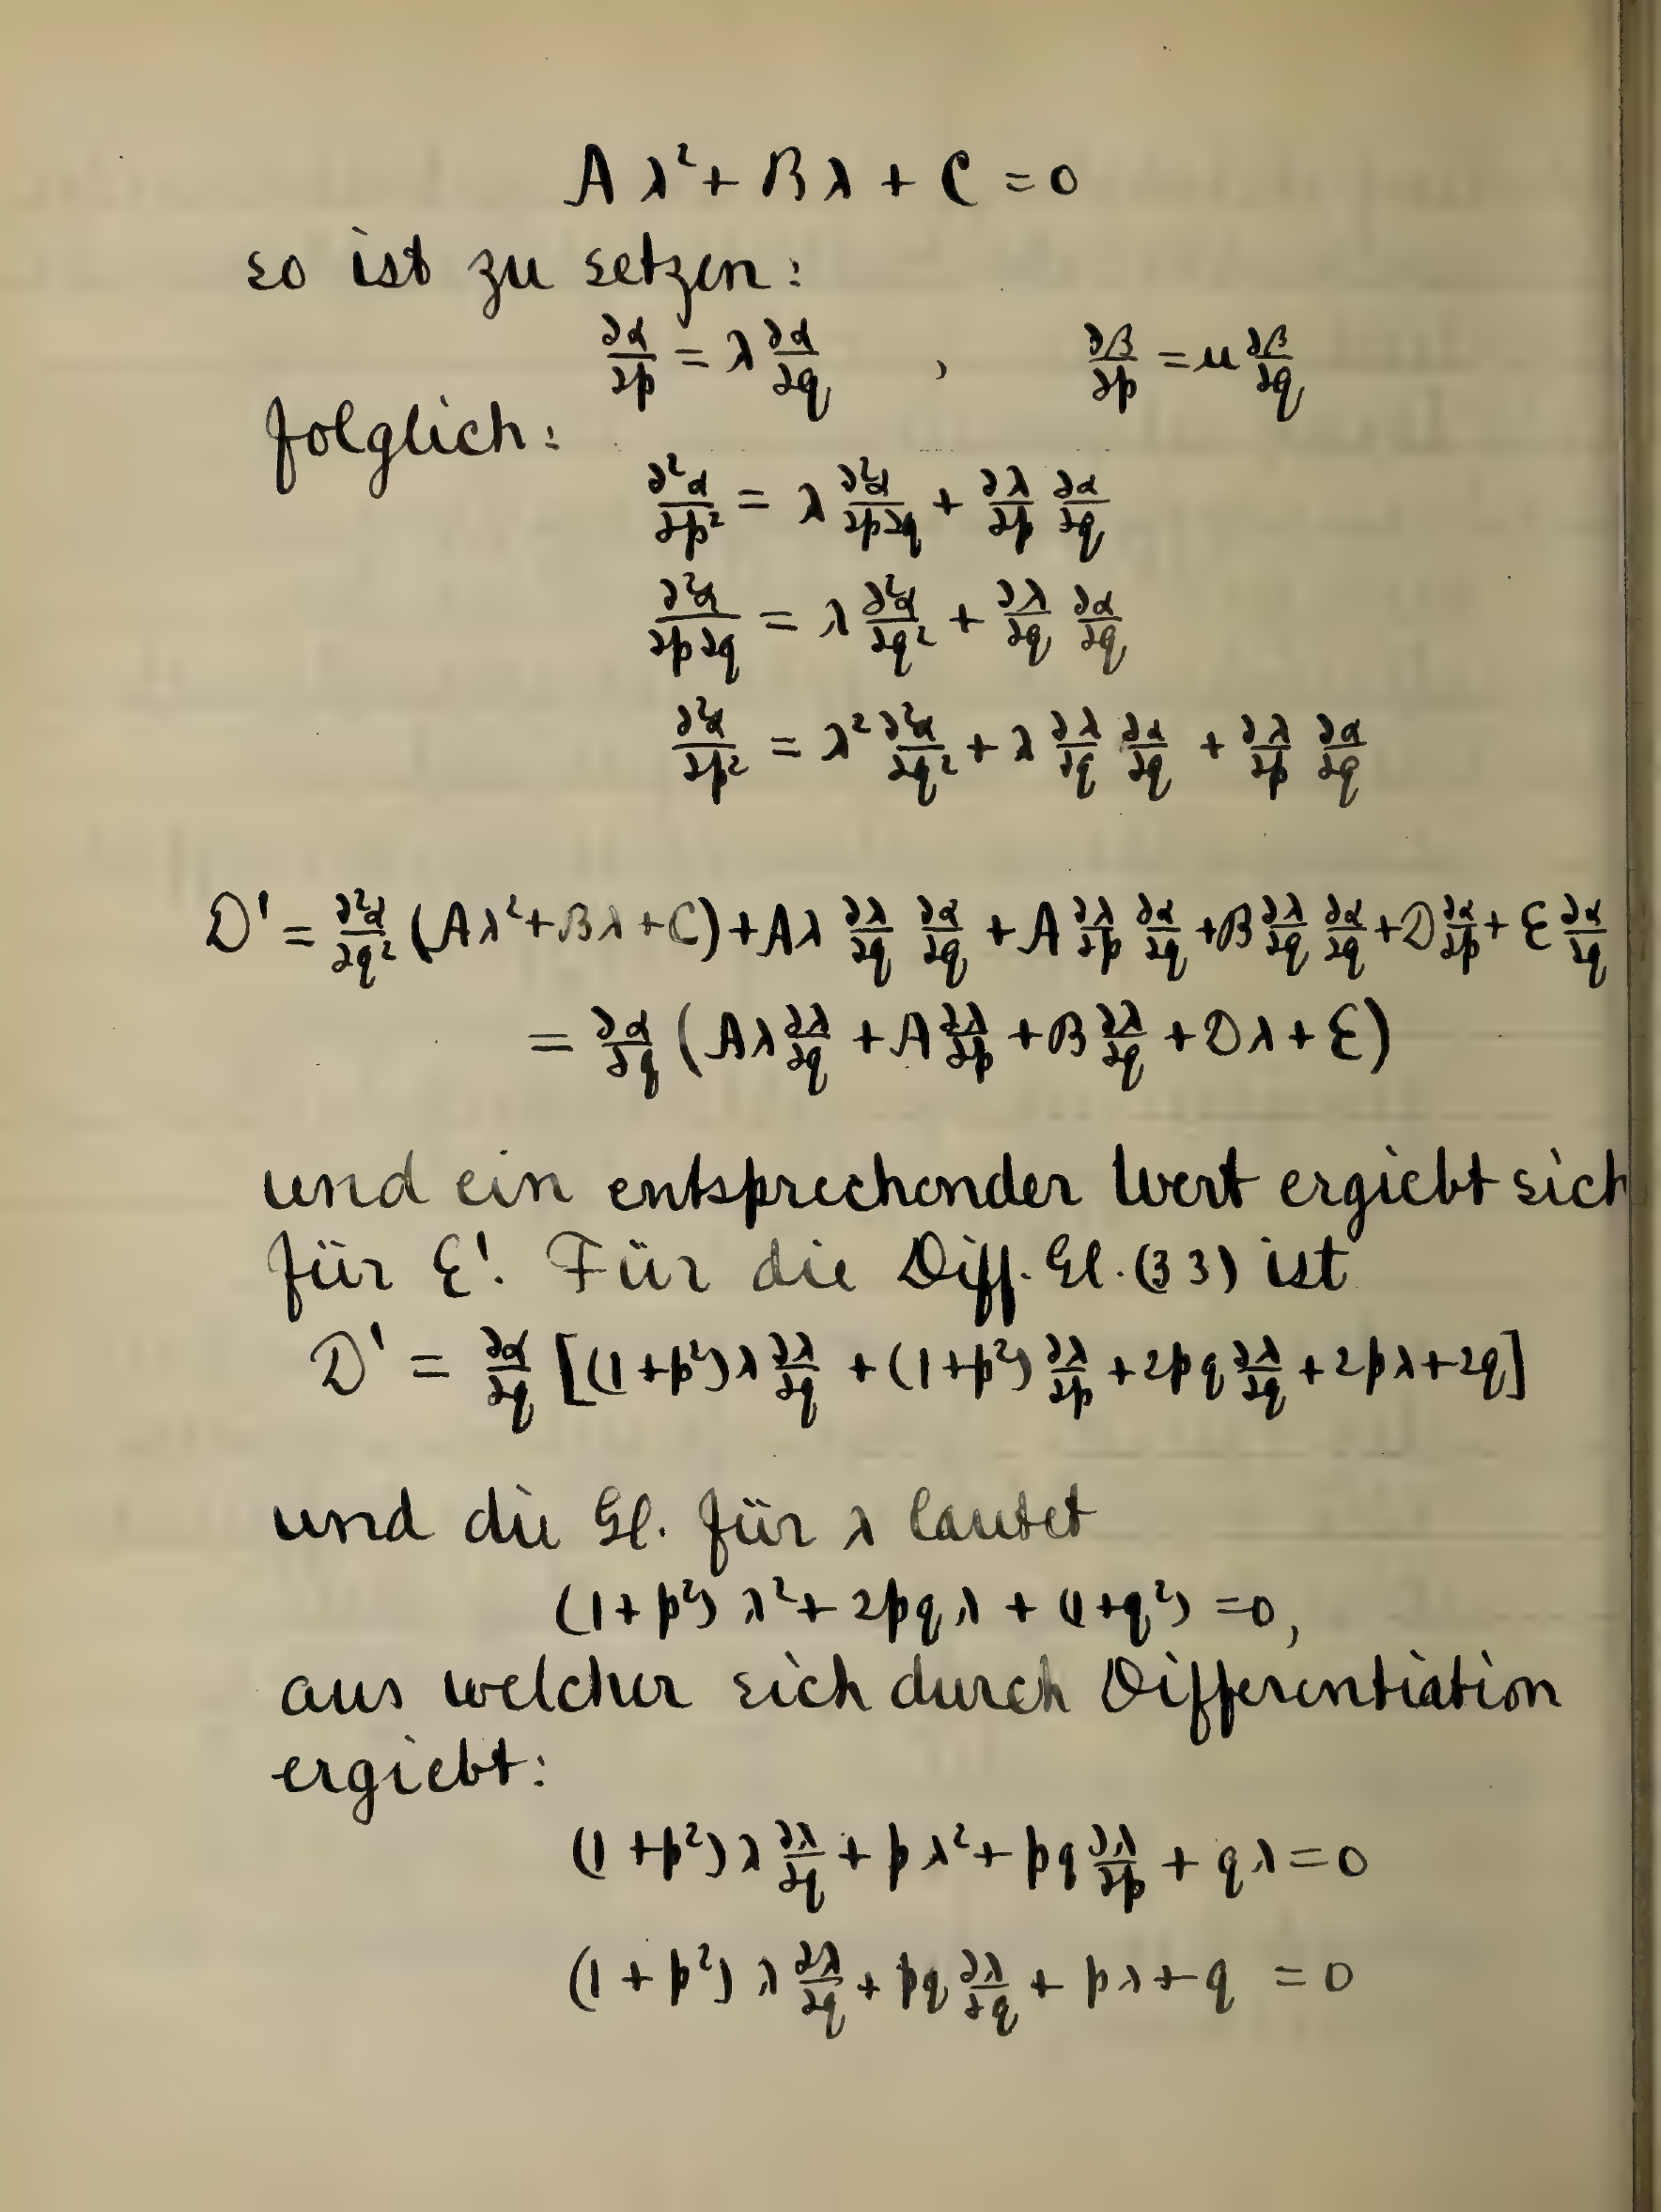 A λ² + B λ + C = 0
so ist zu setzen:
∂α/∂p = λ ∂α/∂q , ∂β/∂p = μ ∂β/∂q
folglich:
∂²α/∂p² = λ ∂²α/∂p∂q + ∂λ/∂p ∂α/∂q
∂²α/∂p∂q = λ ∂²α/∂q² + ∂λ/∂q ∂α/∂q
∂²α/∂p² = λ² ∂²α/∂q² + λ ∂λ/∂q ∂α/∂q + ∂λ/∂p ∂α/∂q
D' = ∂²α/∂q² (Aλ² + Bλ + C) + Aλ ∂λ/∂q ∂α/∂q + A ∂λ/∂p ∂α/∂q + B ∂λ/∂q ∂α/∂q + D ∂α/∂p + E ∂α/∂q
= ∂α/∂q (Aλ ∂λ/∂q + A ∂λ/∂p + B ∂λ/∂q + Dλ + E)
und ein entsprechender Wert ergiebt sich
für E'. Für die Diff. Gl. (33) ist
D' = ∂α/∂q [(1+p²)λ ∂λ/∂q + (1+p²) ∂λ/∂p + 2pq ∂λ/∂q + 2pλ + 2q]
und die Gl. für λ lautet
(1+p²) λ² + 2pqλ + (1+q²) = 0,
aus welcher sich durch Differentiation
ergiebt:
(1+p²) λ ∂λ/∂q + pλ² + pq ∂λ/∂p + qλ = 0
(1+p²) λ ∂λ/∂q + pq ∂λ/∂q + pλ + q = 0